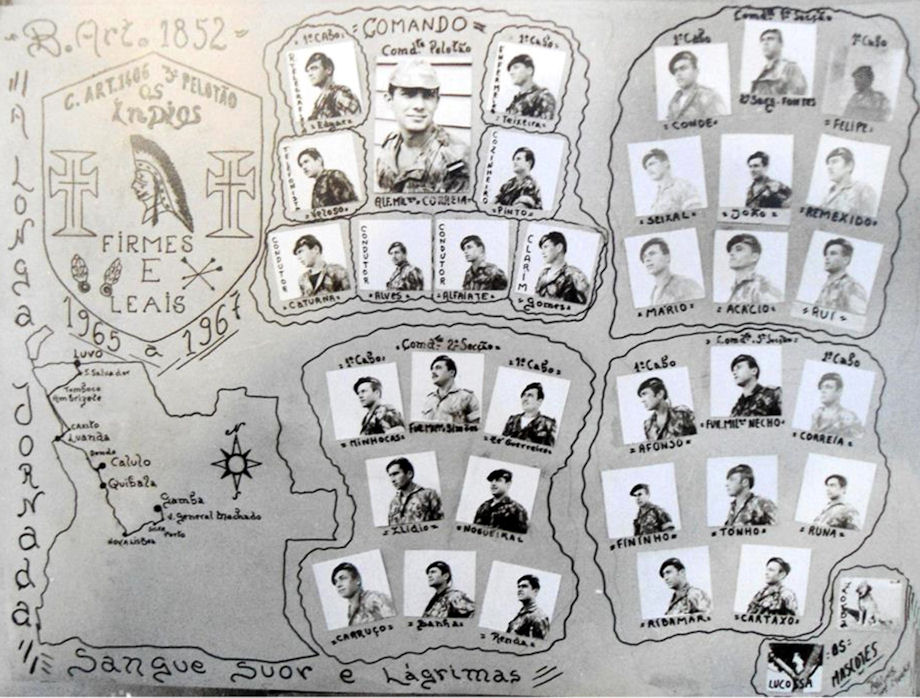 B. Art. 1852
C. ART. 1406 3º PELOTÃO
OS
ÍndIOS
FIRMES
E
LEAIS
1965 a 1967
A LONGA JORNADA
LUVO
S. Salvador
Tomboco
Ambrizete
CAXITO
Luanda
Dondo
Calulo
Quibala
Gamba
V. General Machado
Silva Porto
NOVA LISBOA
Sangue Suor e Lágrimas
=COMANDO=
Comdte Pelotão
1º Cabo
Edgard
ALF. MILº CORREIA
1º Cabo
ENFERMEIRO
Teixeira
Veloso
COZINHEIRO
PINTO
CONDUTOR
CATURNA
CONDUTOR
=ALVES=
CONDUTOR
=ALFAIATE=
CLARIM
Gomes
Comdte 1ª Secção
1º Cabo
=CONDE=
2º Sarg. FONTES
1º Cabo
=FELIPE=
=SEIXAL=
=JOÃO=
=REMEXIDO=
=MÁRIO=
=ACÁCIO=
=RUI=
Comdte 2ª Secção
1º Cabo
=MINHOCAS=
FUR. MILº Simões
1º Cabo
Guerreiro
=ILÍDIO=
=NOGUEIRA=
=CARRUÇO=
=Banha=
=Renda=
Comdte 3ª Secção
1º Cabo
=AFONSO=
FUR. MILº NECHO
1º Cabo
=CORREIA=
=FININHO=
=TONHO=
=RUNA=
=RIBAMAR=
=CARTAXO=
=OS=
MASCOTES
LUCOSSA